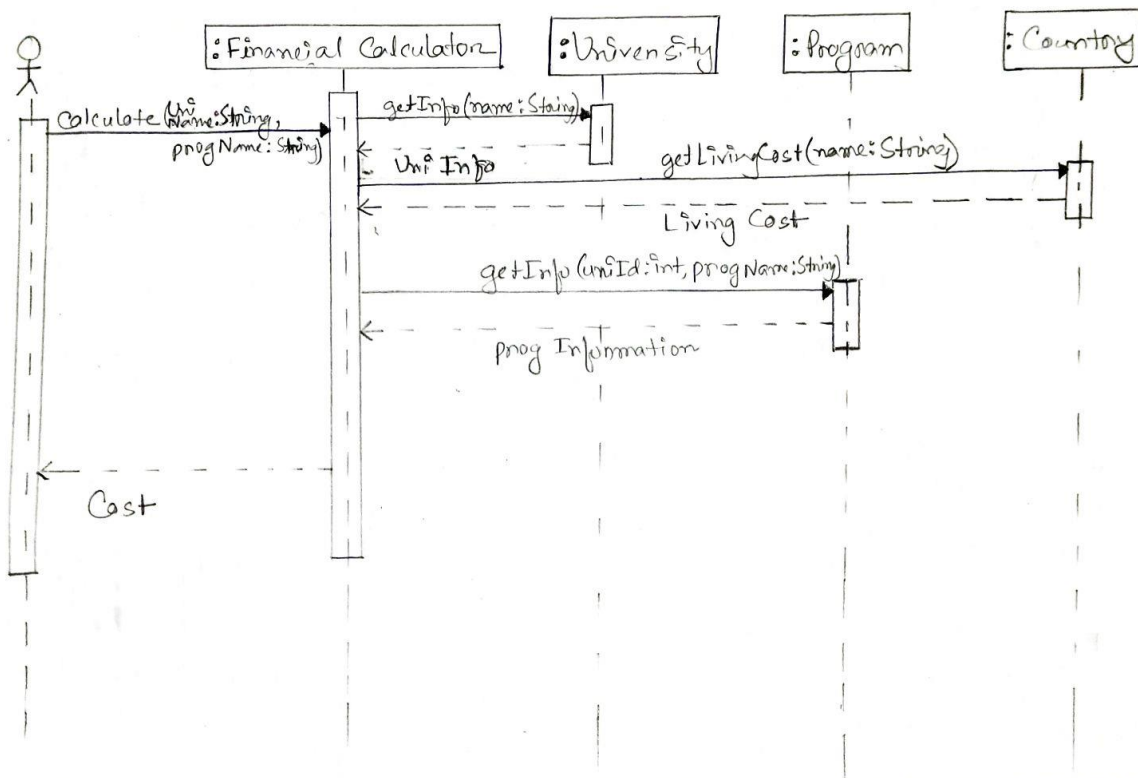 :Financial Calculator
:University
:Program
:Country
Calculate(Uni
Name:String,
progName:String)
getInfo(name:String)
Uni Info
getLivingCost(name:String)
Living Cost
getInfo(uniId:int,progName:String)
prog Information
Cost